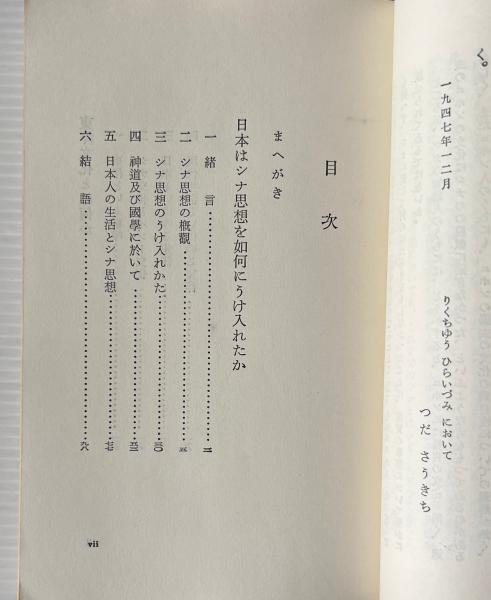 く。
一九四七年一二月
りくちゆう ひらいづみ において
つだ さうきち
目 次
まへがき
日本はシナ思想を如何にうけ入れたか
一 緒言
二 シナ思想の概觀
三 シナ思想のうけ入れかた
四 神道及び國學に於いて
五 日本人の生活とシナ思想
六 結語
vii